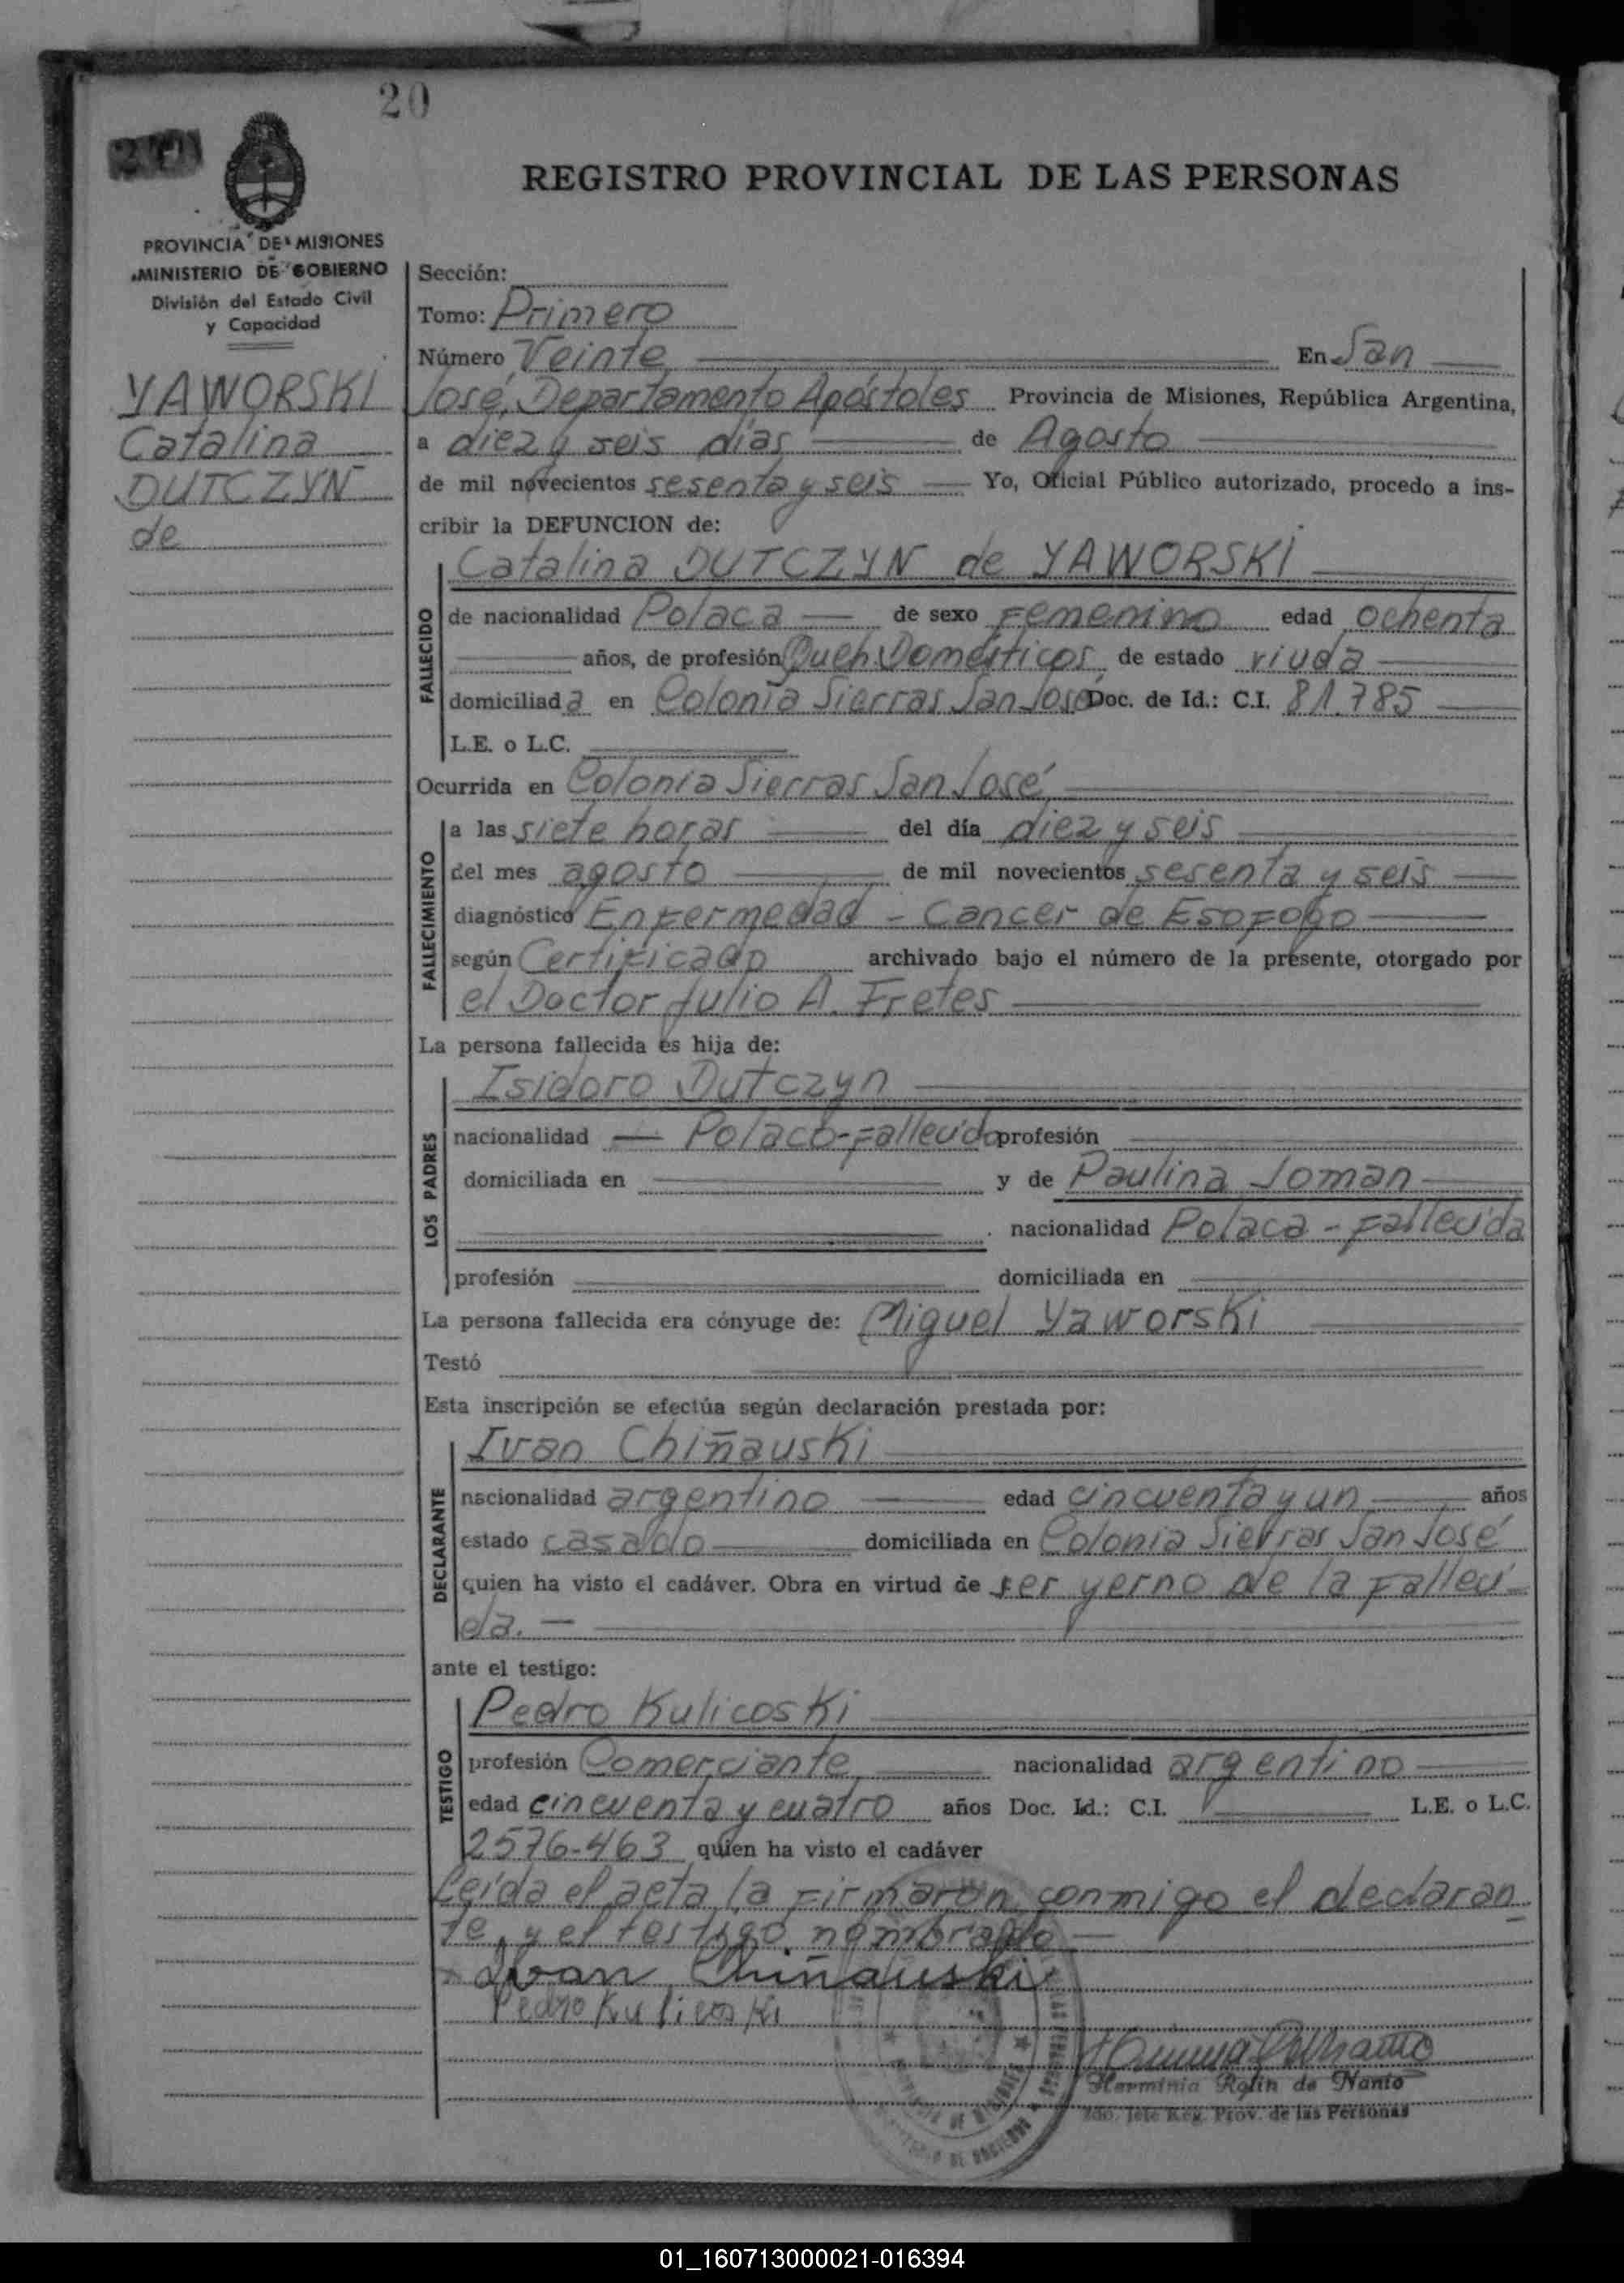 20
REGISTRO PROVINCIAL DE LAS PERSONAS
PROVINCIA DE MISIONES
MINISTERIO DE GOBIERNO
División del Estado Civil
y Capacidad
YAWORSKI
Catalina
DUTCZYN
de
Sección:
Tomo: Primero
Número Veinte En San
José, Departamento Apóstoles Provincia de Misiones, República Argentina,
a diez y seis días de Agosto
de mil novecientos sesenta y seis Yo, Oficial Público autorizado, procedo a ins-
cribir la DEFUNCION de:
FALLECIDO
Catalina DUTCZYN de YAWORSKI
de nacionalidad Polaca de sexo Femenino edad ochenta
años, de profesión Queh. Domésticos de estado viuda
domiciliad a en Colonia Sierras San José Doc. de Id.: C.I. 81.785
L.E. o L.C.
Ocurrida en Colonia Sierras San José
FALLECIMIENTO
a las siete horas del día diez y seis
del mes agosto de mil novecientos sesenta y seis
diagnóstico Enfermedad - Cancer de Esofogo
según Certificado archivado bajo el número de la presente, otorgado por
el Doctor Julio A. Fretes
La persona fallecida es hija de:
LOS PADRES
Isidoro Dutczyn
nacionalidad — Polaco-fallecido profesión
domiciliada en y de Paulina Joman
nacionalidad Polaca - fallecida
profesión domiciliada en
La persona fallecida era cónyuge de: Miguel Yaworski
Testó
Esta inscripción se efectúa según declaración prestada por:
DECLARANTE
Ivan Chiñauski
nacionalidad argentino edad cincuenta y un años
estado casado domiciliada en Colonia Sierras San José
quien ha visto el cadáver. Obra en virtud de ser yerno de la falleci-
da. —
ante el testigo:
TESTIGO
Pedro Kulicoski
profesión Comerciante nacionalidad argentino
edad cincuenta y cuatro años Doc. Id.: C.I. L.E. o L.C.
2576-463 quien ha visto el cadáver
Leída el acta, la firmaron conmigo el declaran-
te, y el testigo nombrado —
Ivan Chiñauski
Pedro Kulicoski
Herminia Rolin de Nanto
2do. Jefe Reg. Prov. de las Personas
01_160713000021-016394